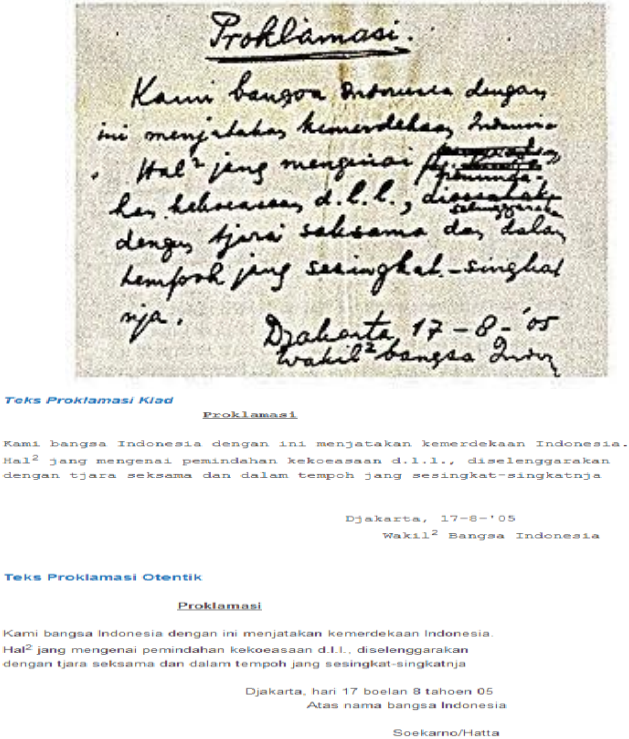 Proklamasi.
Kami bangsa Indonesia dengan
ini menjatakan kemerdekaan Indonesia
. Hal² jang mengenai
pemindahan
kan kekoeasaan d.l.l., diselenggarakan
dengan tjara saksama dan dalam
tempoh jang sesingkat-singkat
nja.
Djakarta, 17 - 8 - '05
Wakil² bangsa Indon
Teks Proklamasi Klad
Proklamasi
Kami bangsa Indonesia dengan ini menjatakan kemerdekaan Indonesia.
Hal² jang mengenai pemindahan kekoeasaan d.l.l., diselenggarakan
dengan tjara seksama dan dalam tempoh jang sesingkat-singkatnja
Djakarta, 17-8-'05
Wakil² Bangsa Indonesia
Teks Proklamasi Otentik
Proklamasi
Kami bangsa Indonesia dengan ini menjatakan kemerdekaan Indonesia.
Hal² jang mengenai pemindahan kekoeasaan d.l.l., diselenggarakan
dengan tjara seksama dan dalam tempoh jang sesingkat-singkatnja
Djakarta, hari 17 boelan 8 tahoen 05
Atas nama bangsa Indonesia
Soekarno/Hatta